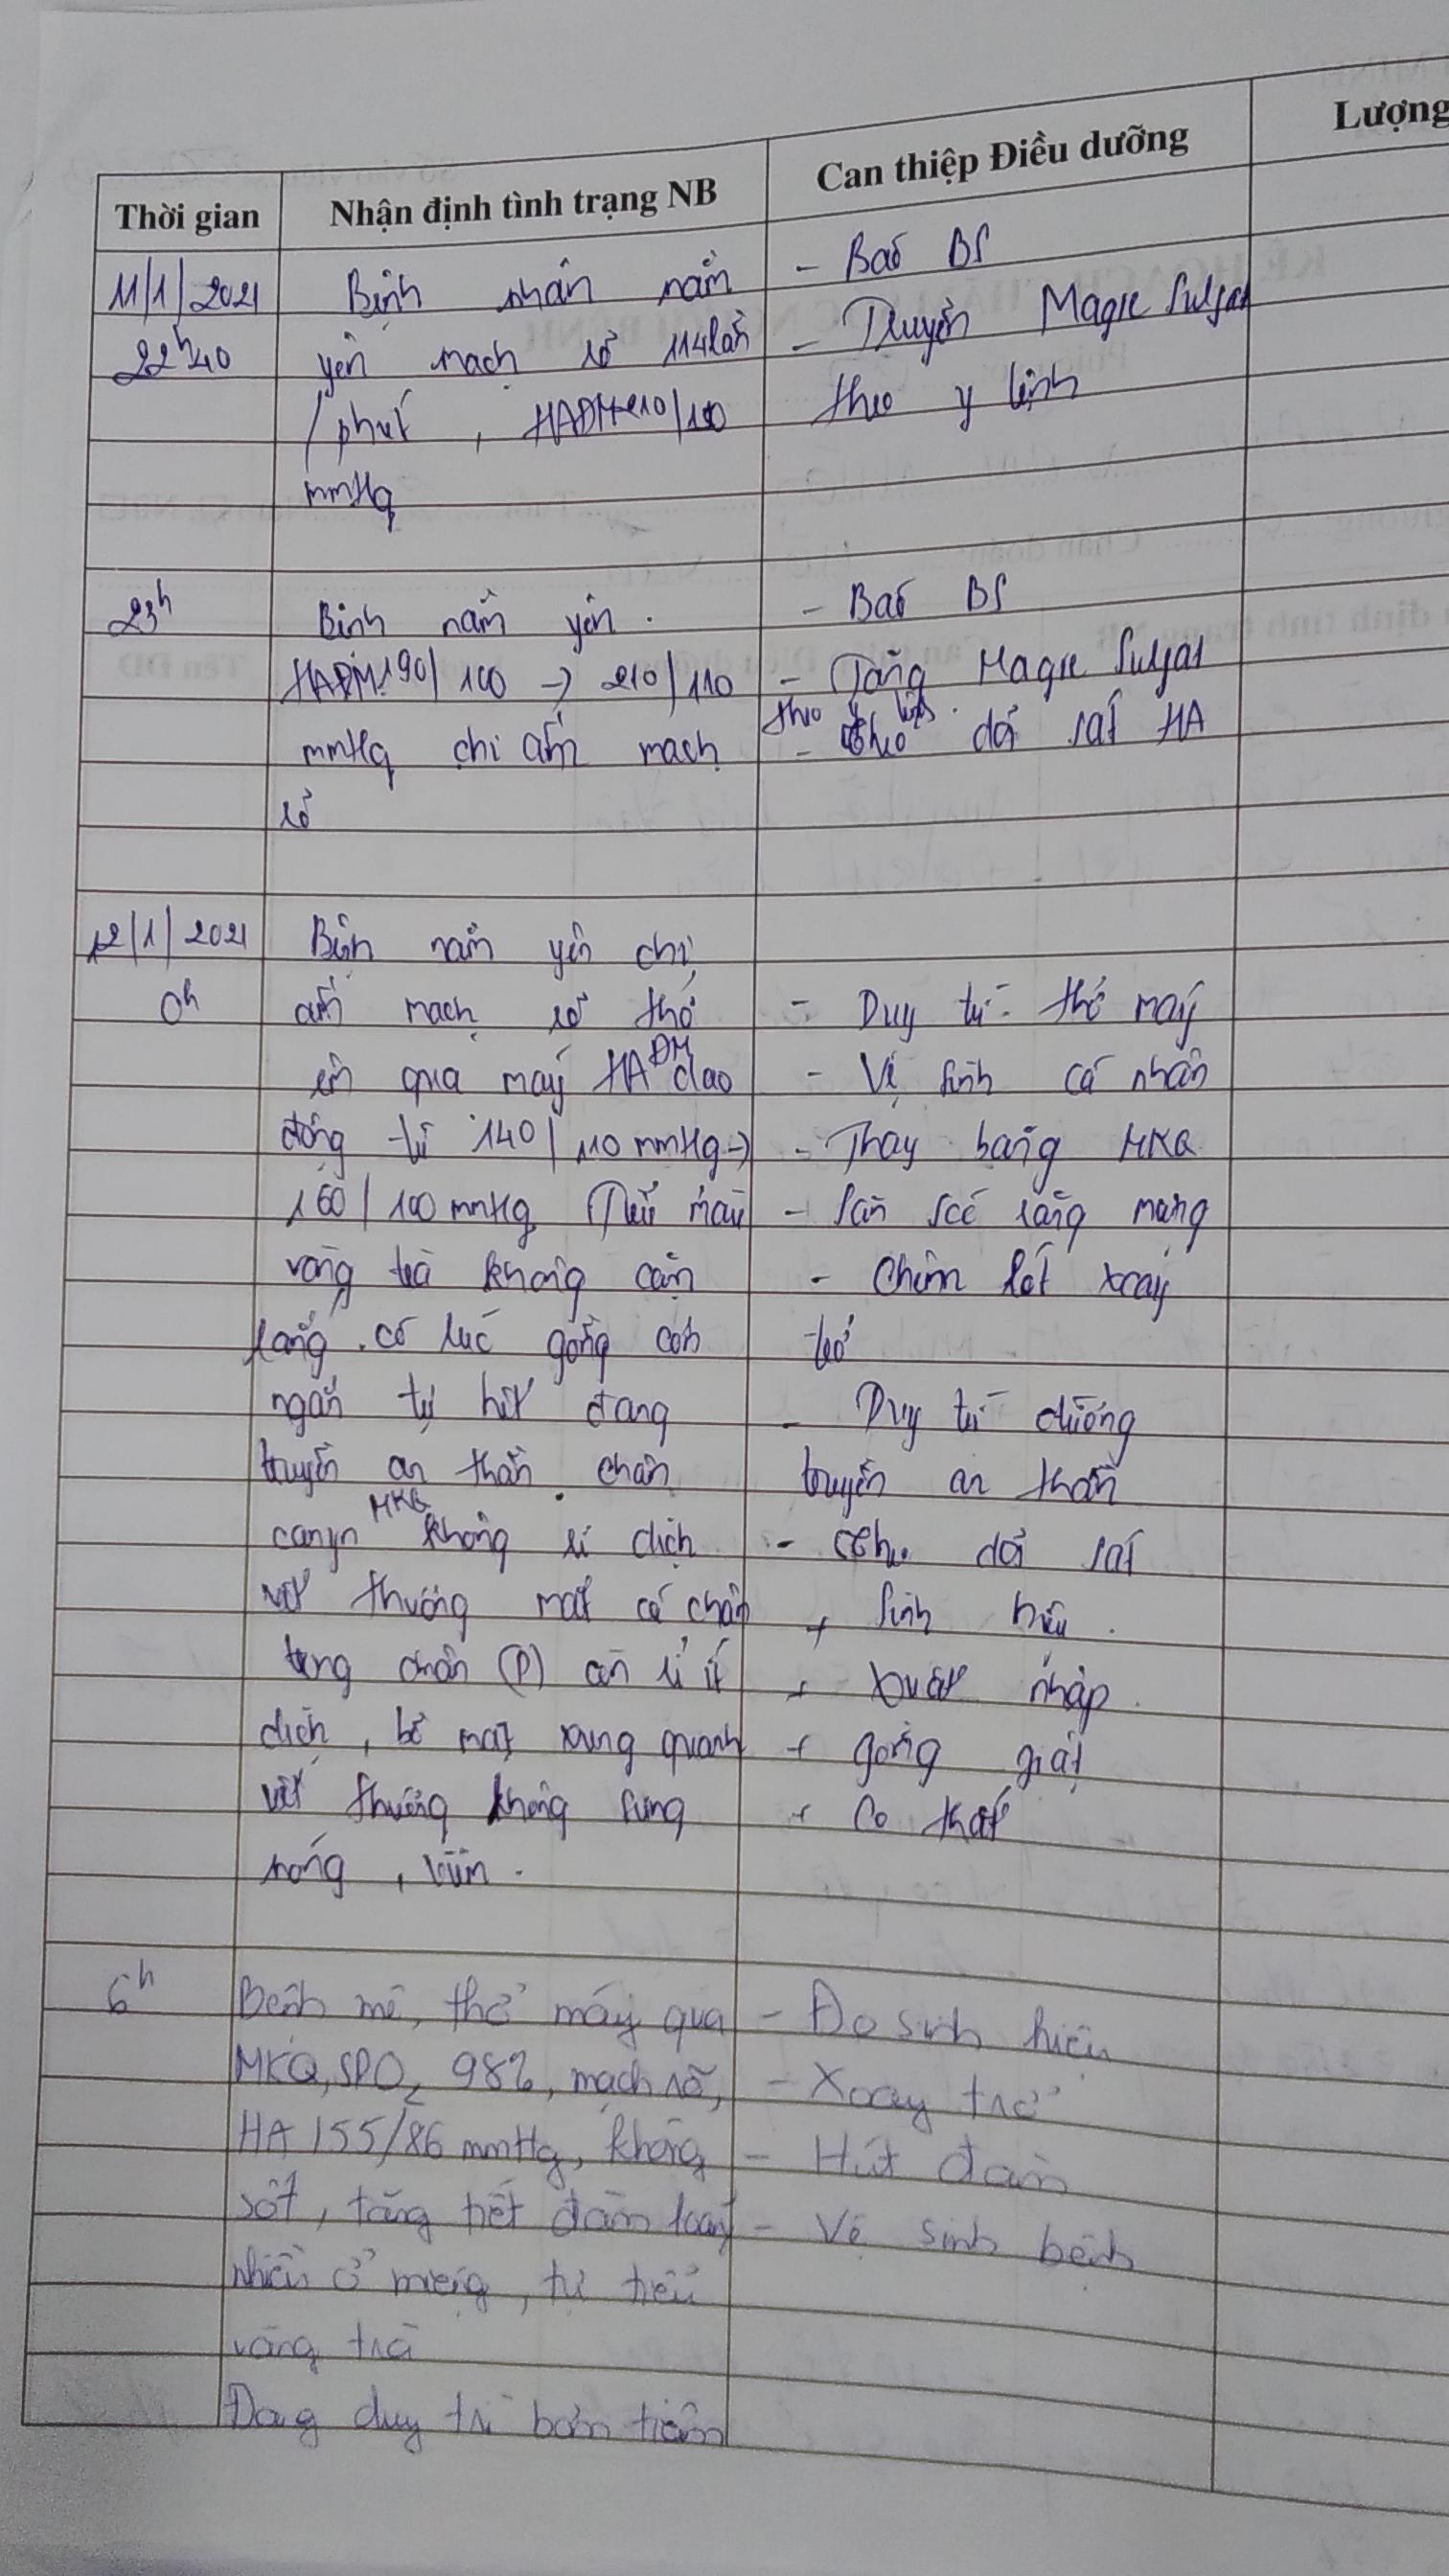 Thời gian
Nhận định tình trạng NB
Can thiệp Điều dưỡng
Lượng
11/1/2021
22h40
Bệnh nhân nằm
yên mạch rõ 114 lần
/phút, HAĐM 210/100
mmHg
- Báo BS
- Truyền Magie Sulfat
theo y lệnh
23h
Bệnh nằm yên.
HAĐM 190/100 → 210/110
mmHg chi ấm mạch
rõ
- Báo BS
- Tăng Magie Sulfat
theo y lệnh.
- theo dõi sát HA
12/1/2021
0h
Bệnh nằm yên chi
ấm mạch rõ thở
êm qua máy HAĐM dao
động từ 140/110 mmHg →
160/100 mmHg Tiểu màu
vàng trà không cặn
lắng. có lúc gồng cơn
ngắn tự hết đang
truyền an thần. chân
canyn MKQ không rỉ dịch
vết thương mắt cá chân
chân (P) còn rỉ ít
dịch, bề mặt xung quanh
vết thương không sưng
nóng,
- Duy trì thở máy
- Vệ sinh cá nhân
- Thay băng MKQ
- Săn sóc răng miệng
- Chêm lót xoay
trở
- Duy trì đường
truyền an thần
- theo dõi sát
+ Sinh hiệu.
+ Xuất nhập.
+ gồng giật
+ Co thắt
6h
Bệnh mê, thở máy qua
MKQ, SPO2 98%, mạch rõ,
HA 155/86 mmHg, không
sốt, tăng tiết đàm loãng
nhiều ở miệng, tự tiểu
vàng trà
Đang duy trì bơm tiêm
- Đo sinh hiệu
- Xoay trở
- Hút đàm
- Vệ sinh bệnh